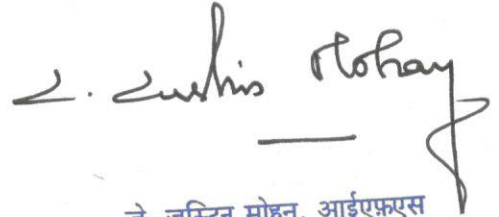 J. Justin Mohan
जे. जस्टिन मोहन, आईएफ़एस